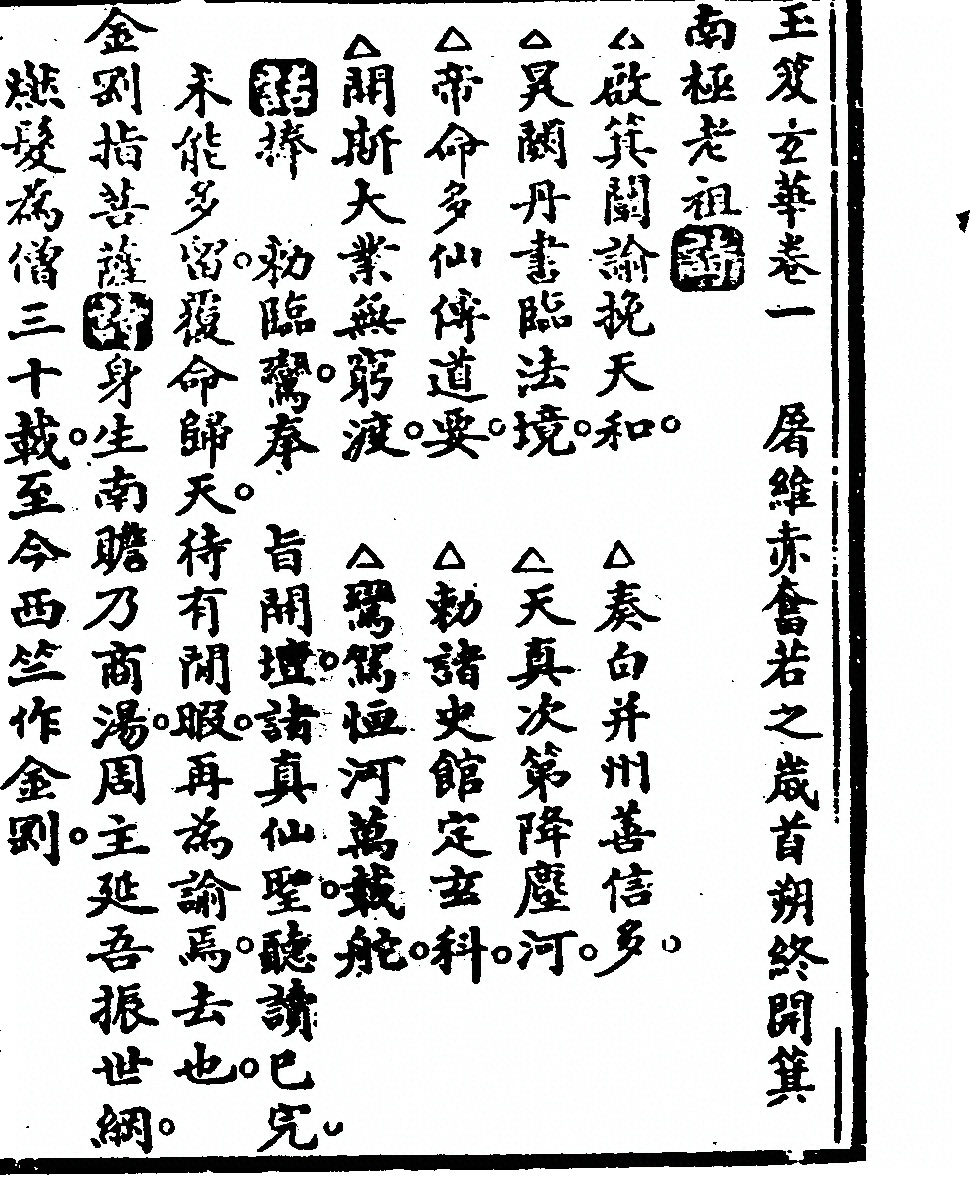 玉笈玄華卷一　屠維赤奮若之歲首朔終開箕
南極老祖詩
△啟箕闡諭挽天和。　△奏白并州善信多。
△昊闕丹書臨法境。　△天真次第降塵河。
△帝命多仙傳道要。　△勅諸史館定玄科。
△開斯大業無窮渡。　△鸞駕恒河萬載舵。
話捧　勅臨鸞。奉　旨開壇。諸真仙聖。聽讀已完。
未能多留。覆命歸天。待有閒暇。再為諭焉。去也。
金剛指菩薩詩身生南瞻乃商湯。周主延吾振世綱。
燃髮為僧三十載。至今西竺作金剛。